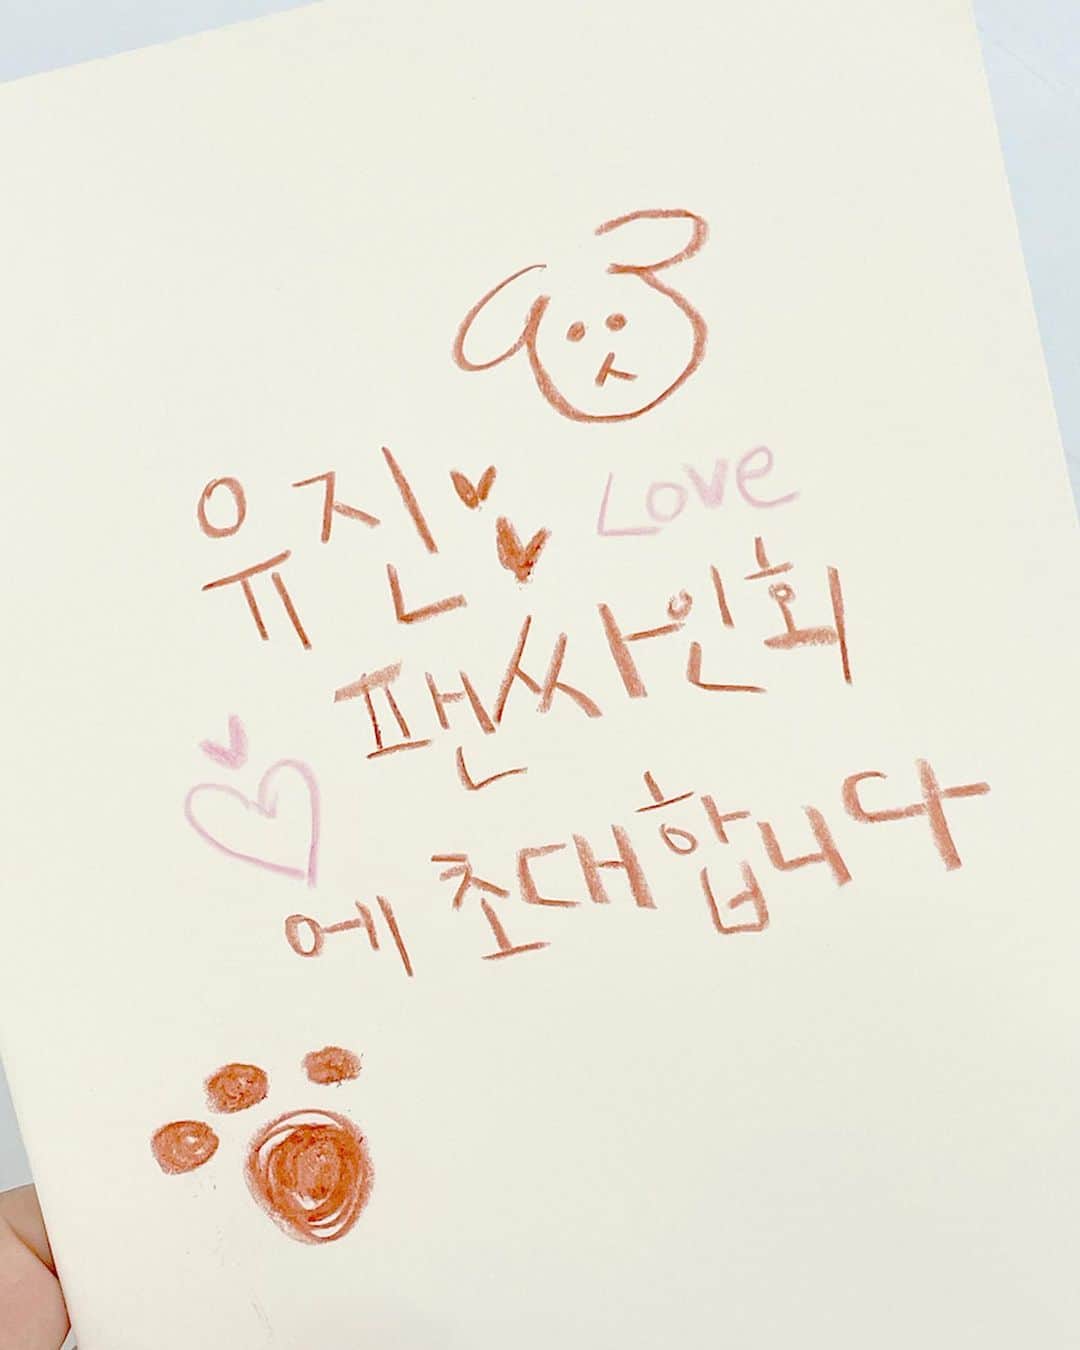 유진
Love
팬싸인회
에 초대합니다